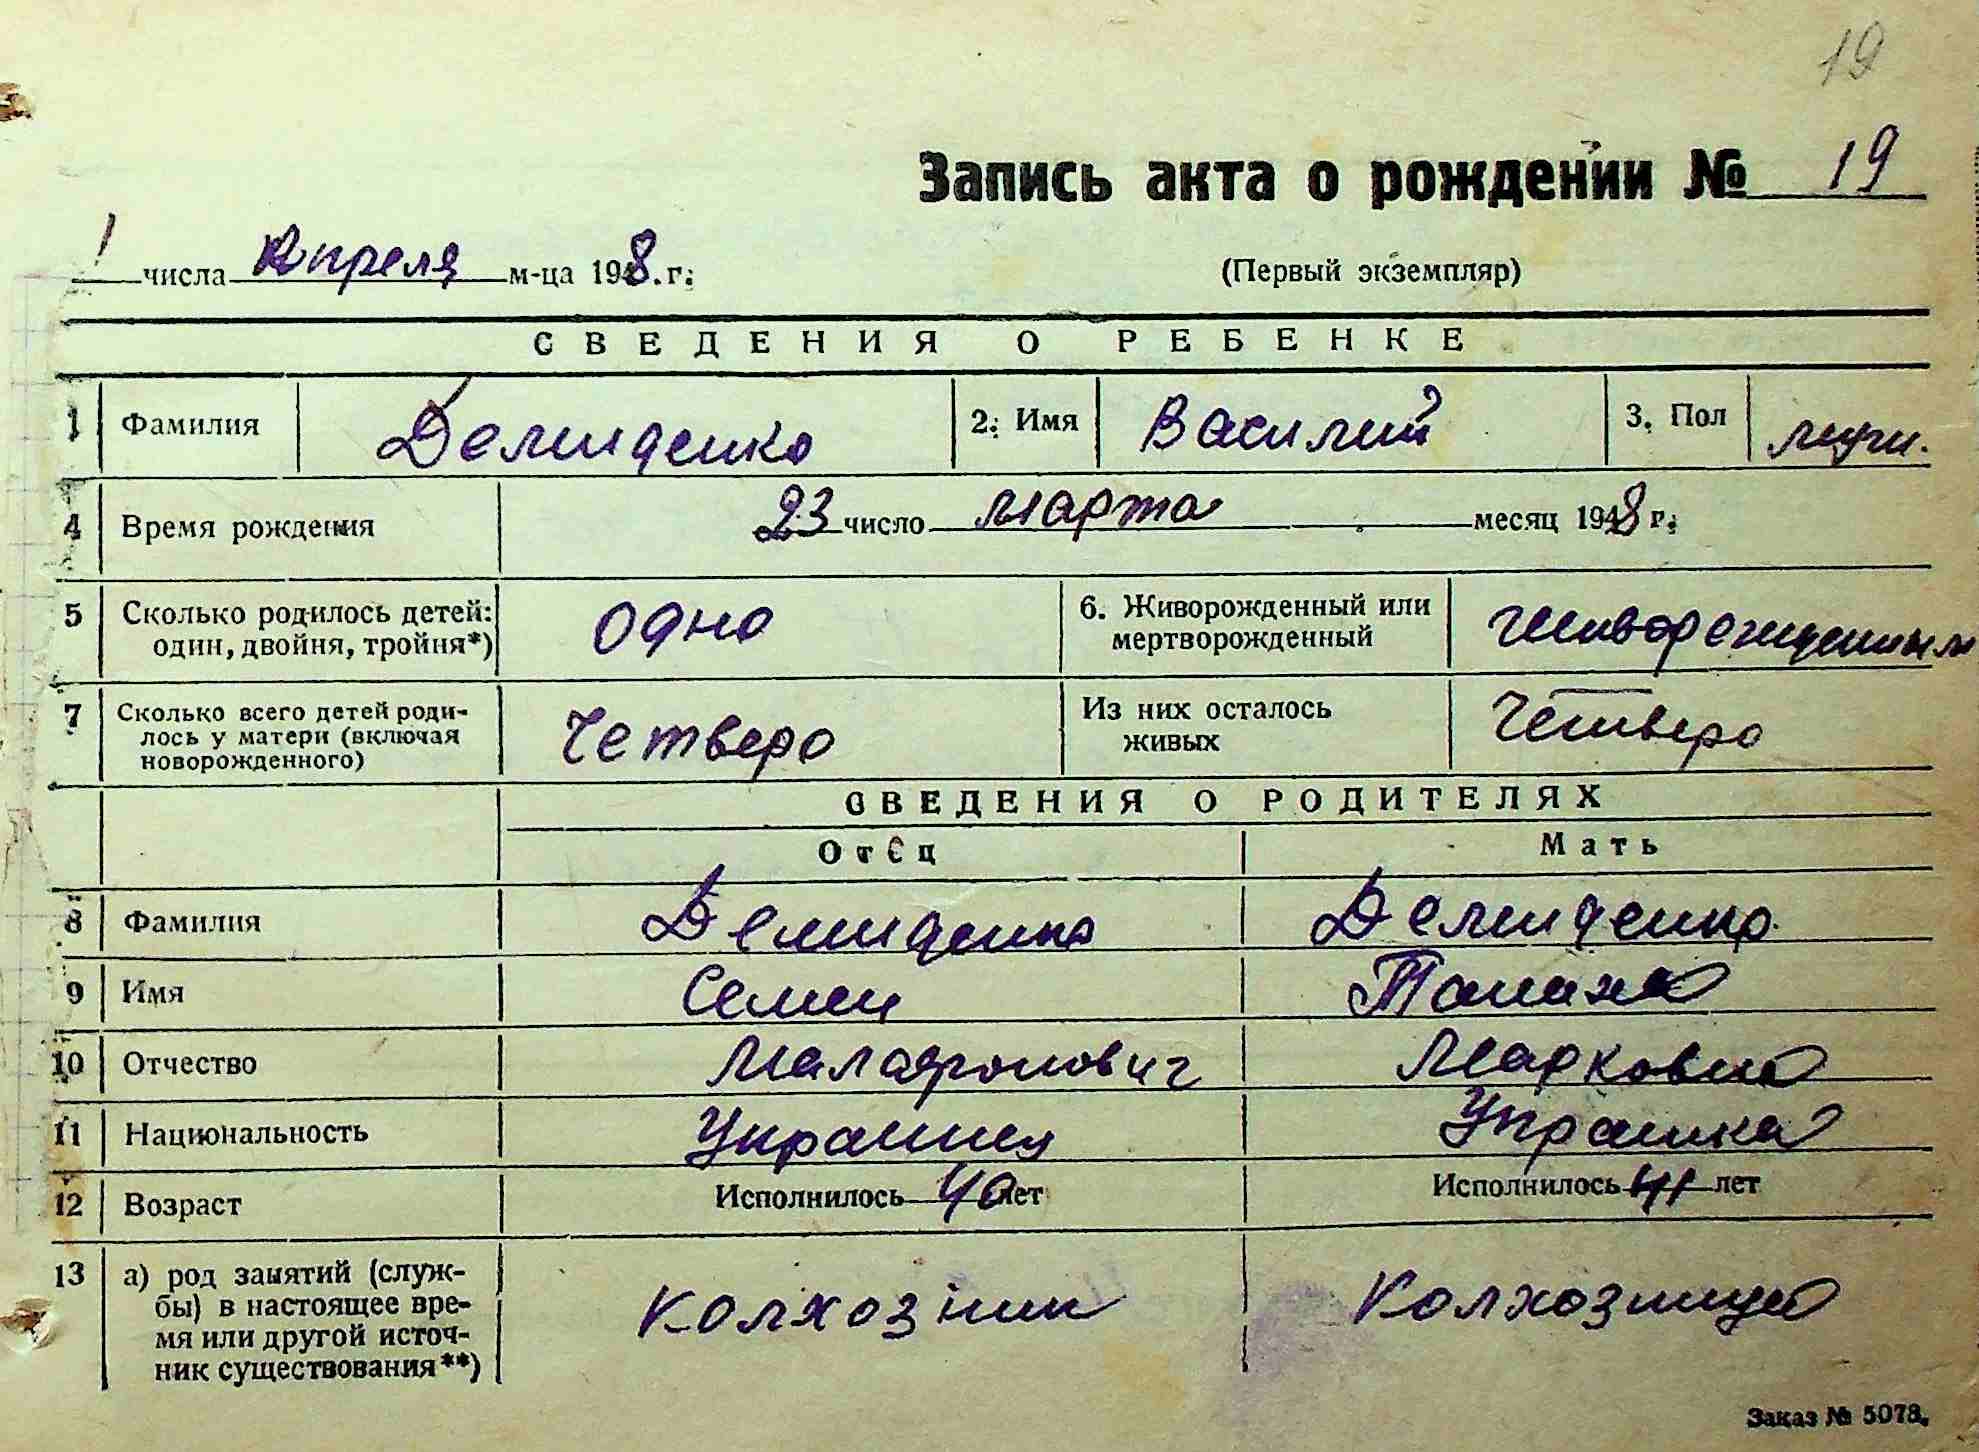 19
Запись акта о рождении № 19
1 числа Апреля м-ца 1948. г.
(Первый экземпляр)
СВЕДЕНИЯ О РЕБЕНКЕ
1 Фамилия Демиденко 2. Имя Василий 3. Пол муж.
4 Время рождения 23 число марта месяц 1948 г.
5 Сколько родилось детей: один, двойня, тройня*) одно 6. Живорожденный или мертворожденный живорожденным
7 Сколько всего детей роди-
лось у матери (включая новорожденного) Четверо Из них осталось живых Четверо
СВЕДЕНИЯ О РОДИТЕЛЯХ
Отец Мать
8 Фамилия Демиденко Демиденко
9 Имя Семен
10 Отчество Марковна
11 Национальность Украинец Украинка
12 Возраст Исполнилось 40 лет Исполнилось 41 лет
13 а) род занятий (служ-
бы) в настоящее вре-
мя или другой источ-
ник существования**) Колхозник Колхозница
Заказ № 5078.